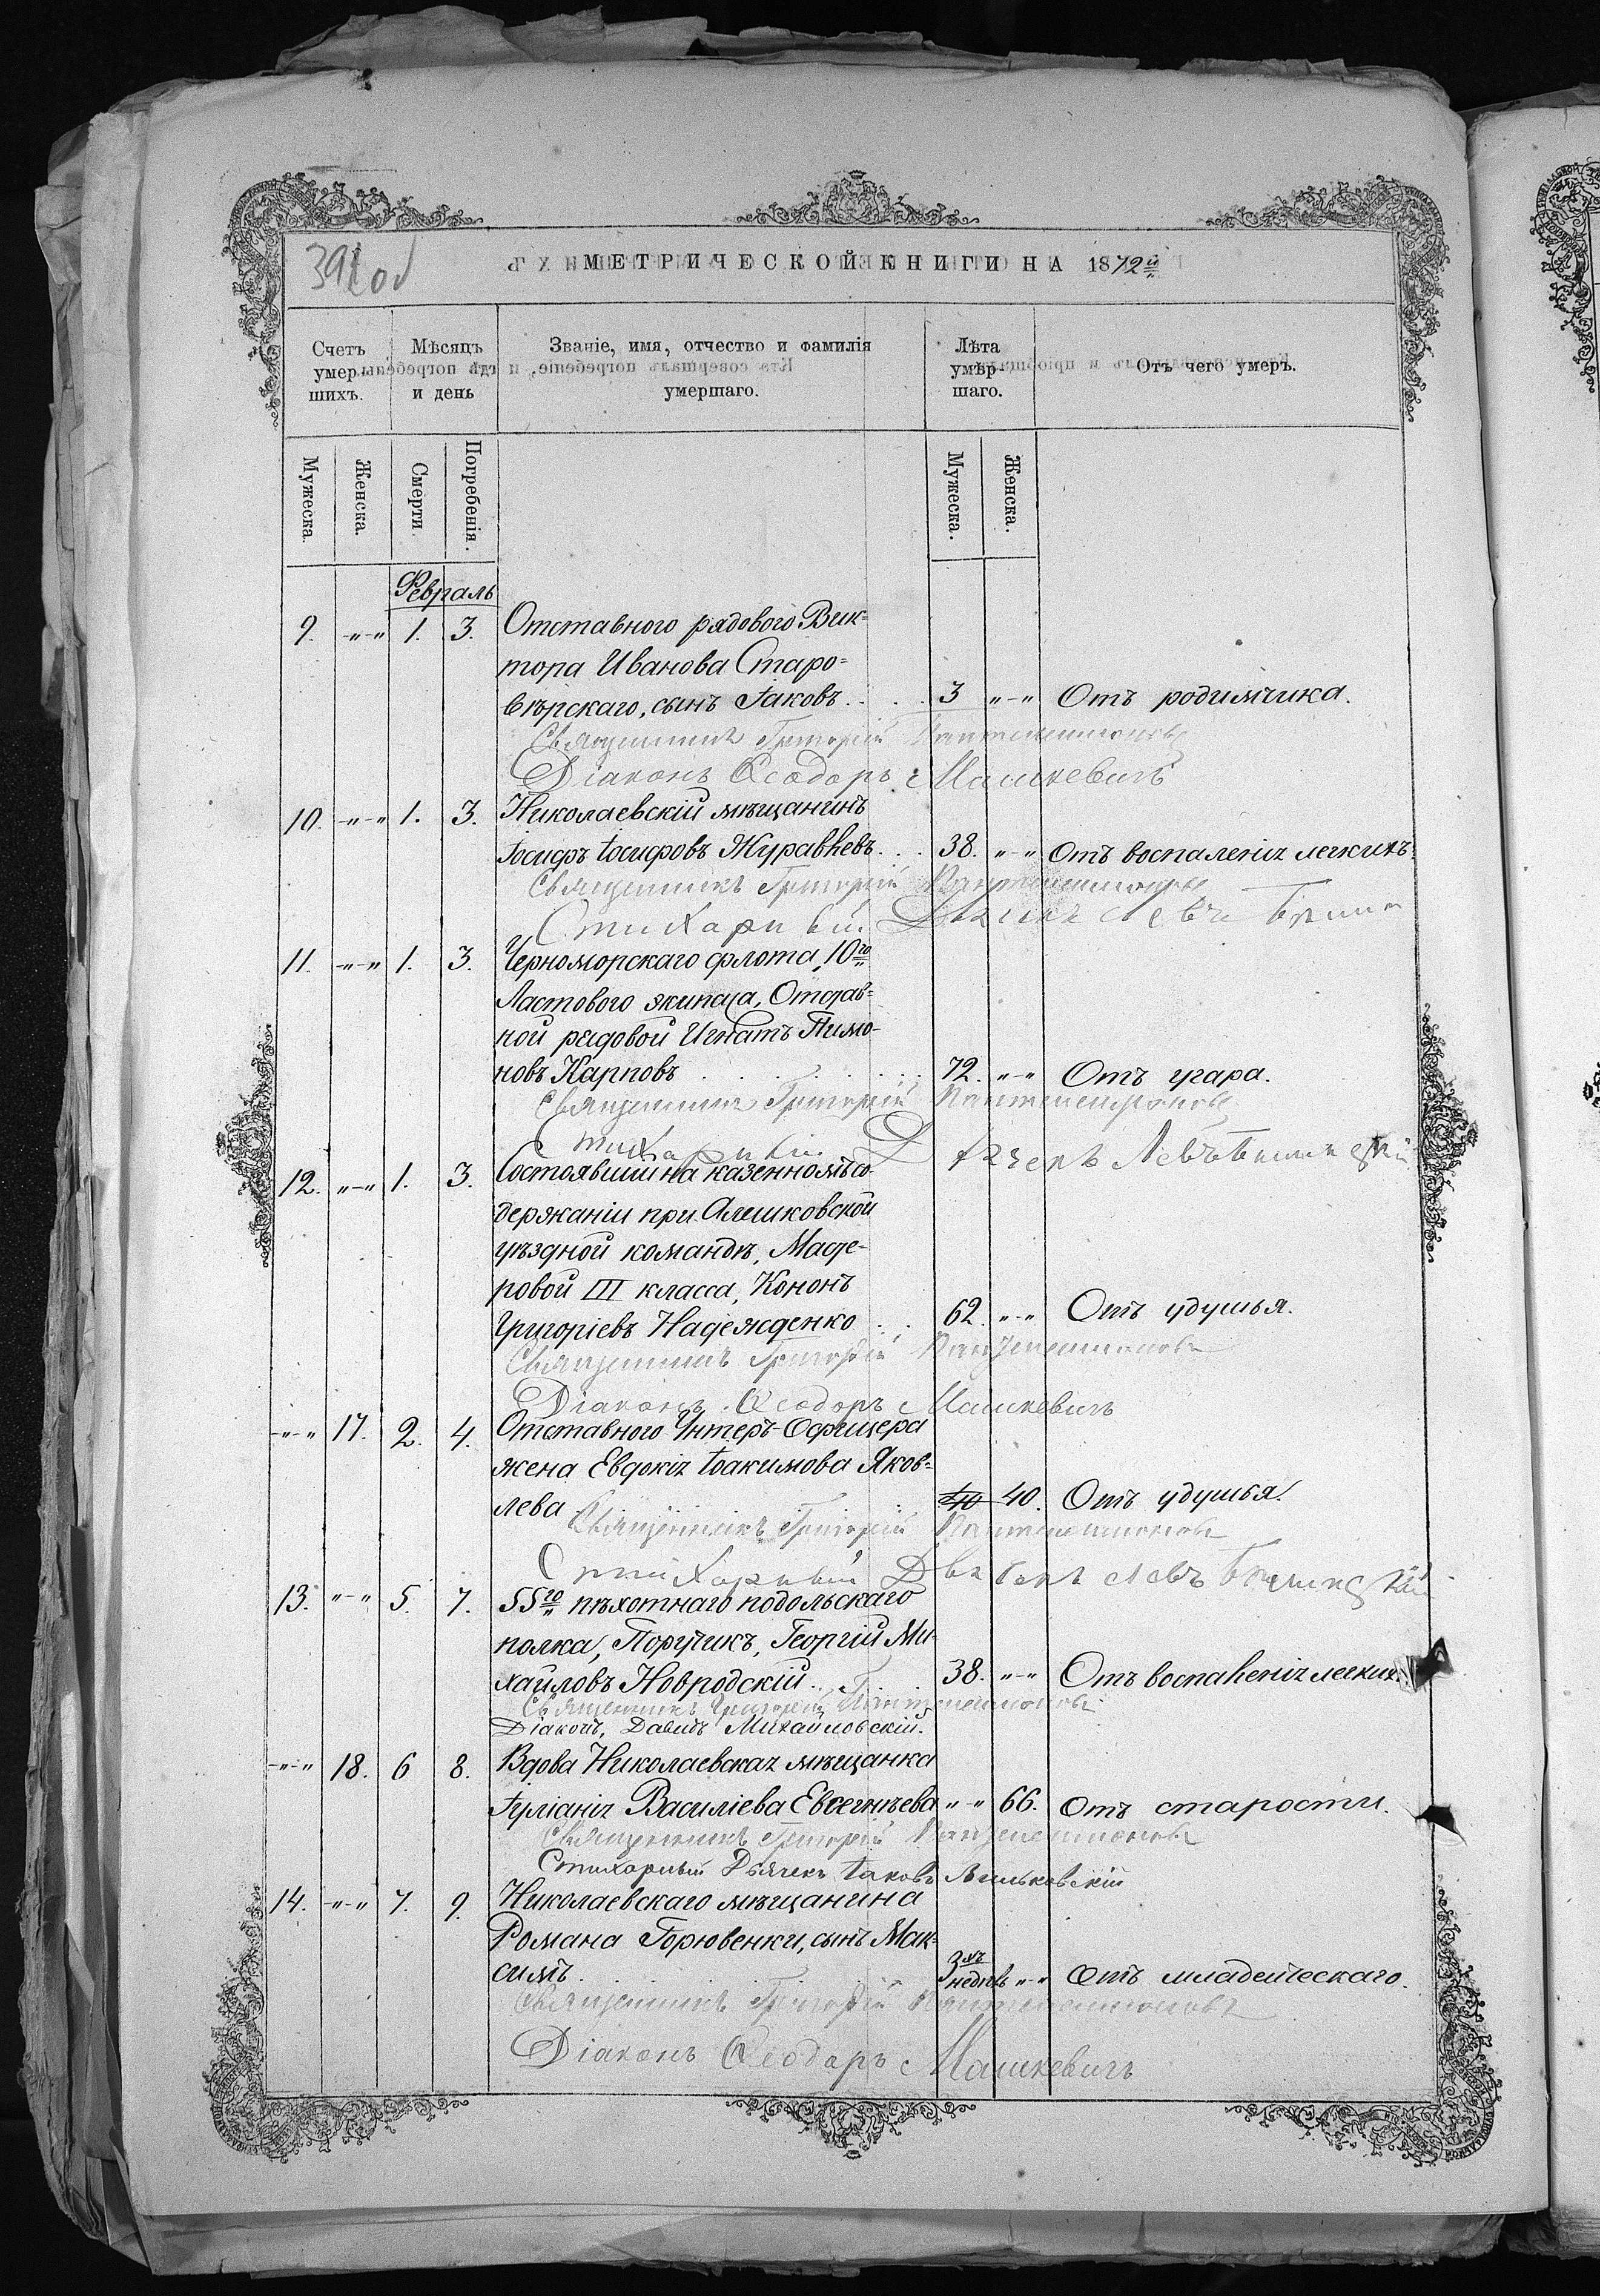 391 об
МЕТРИЧЕСКОЙ КНИГИ НА 1872й
Счетъ умершихъ.
Мѣсяцъ и день
Званіе, имя, отчество и фамилія умершаго.
Лѣта умершаго.
Отъ чего умеръ.
Мужеска.
Женска.
Смерти.
Погребенія.
Мужеска.
Женска.
Февраль
9. „-„ 1. 3. Отставного рядового Вик=
тора Иванова Старо=
вѣрскаго, сынъ Іаковъ . . . 3 „-„ Отъ родимчика.
Священникъ Григорій Пантелеимоновъ
Діаконъ Ѳеодоръ Машкевичъ
10. „-„ 1. 3. Николаевскій мѣщанинъ
Іосифъ Іосифовъ Журавлевъ. . . 38. „-„ Отъ воспаленія легкихъ.
Священникъ Григорій Пантелеимоновъ
Стихарный Дьячекъ Левъ
11. „-„ 1. 3. Черноморскаго флота, 10го
Ластового экипажа, Отстав=
ной рядовой Игнатъ Пимо-
новъ Карповъ . . . . . . 72. „-„ Отъ угара.
Священникъ Григорій Пантелеимоновъ
Стихарный Дьячекъ Левъ
12. „-„ 1. 3. Состоявший на казенномъ со-
держаніи при Алешковской
уѣздной командѣ, Масте-
ровой III класса, Кононъ
Григоріевъ Надежденко . . 62. „-„ Отъ удушья.
Священникъ Григорій Пантелеимоновъ
Діаконъ Ѳеодоръ Машкевичъ
„-„ 17. 2. 4. Отставного Унтеръ-Офицера
жена Евдокія Іоакимова Яков=
лева 40 40. Отъ удушья.
Священникъ Григорій Пантелеимоновъ
Стихарный Дьячекъ Левъ
13. „-„ 5. 7. 55го пѣхотнаго подольскаго
полка, Поручикъ, Георгій Ми-
хайловъ Новродскій . . . 38. „-„ Отъ воспаленія легких.
Священникъ Григорій Пантелеимоновъ
Діаконъ, Давидъ Михайловскій.
„-„ 18. 6 8. Вдова Николаевская мѣщанка
Іуліанія Василіева Евсегнѣева „-„ 66. Отъ старости.
Священникъ Григорій Пантелеимоновъ
Стихарный Дьячекъ Іаковъ Вильковскій
14. „-„ 7. 9. Николаевскаго мѣщанина
Романа Горювенки, сынъ Мак-
симъ. 3хъ недѣль „-„ Отъ младенческаго.
Священникъ Григорій Пантелеимоновъ
Діаконъ Ѳеодоръ Машкевичъ